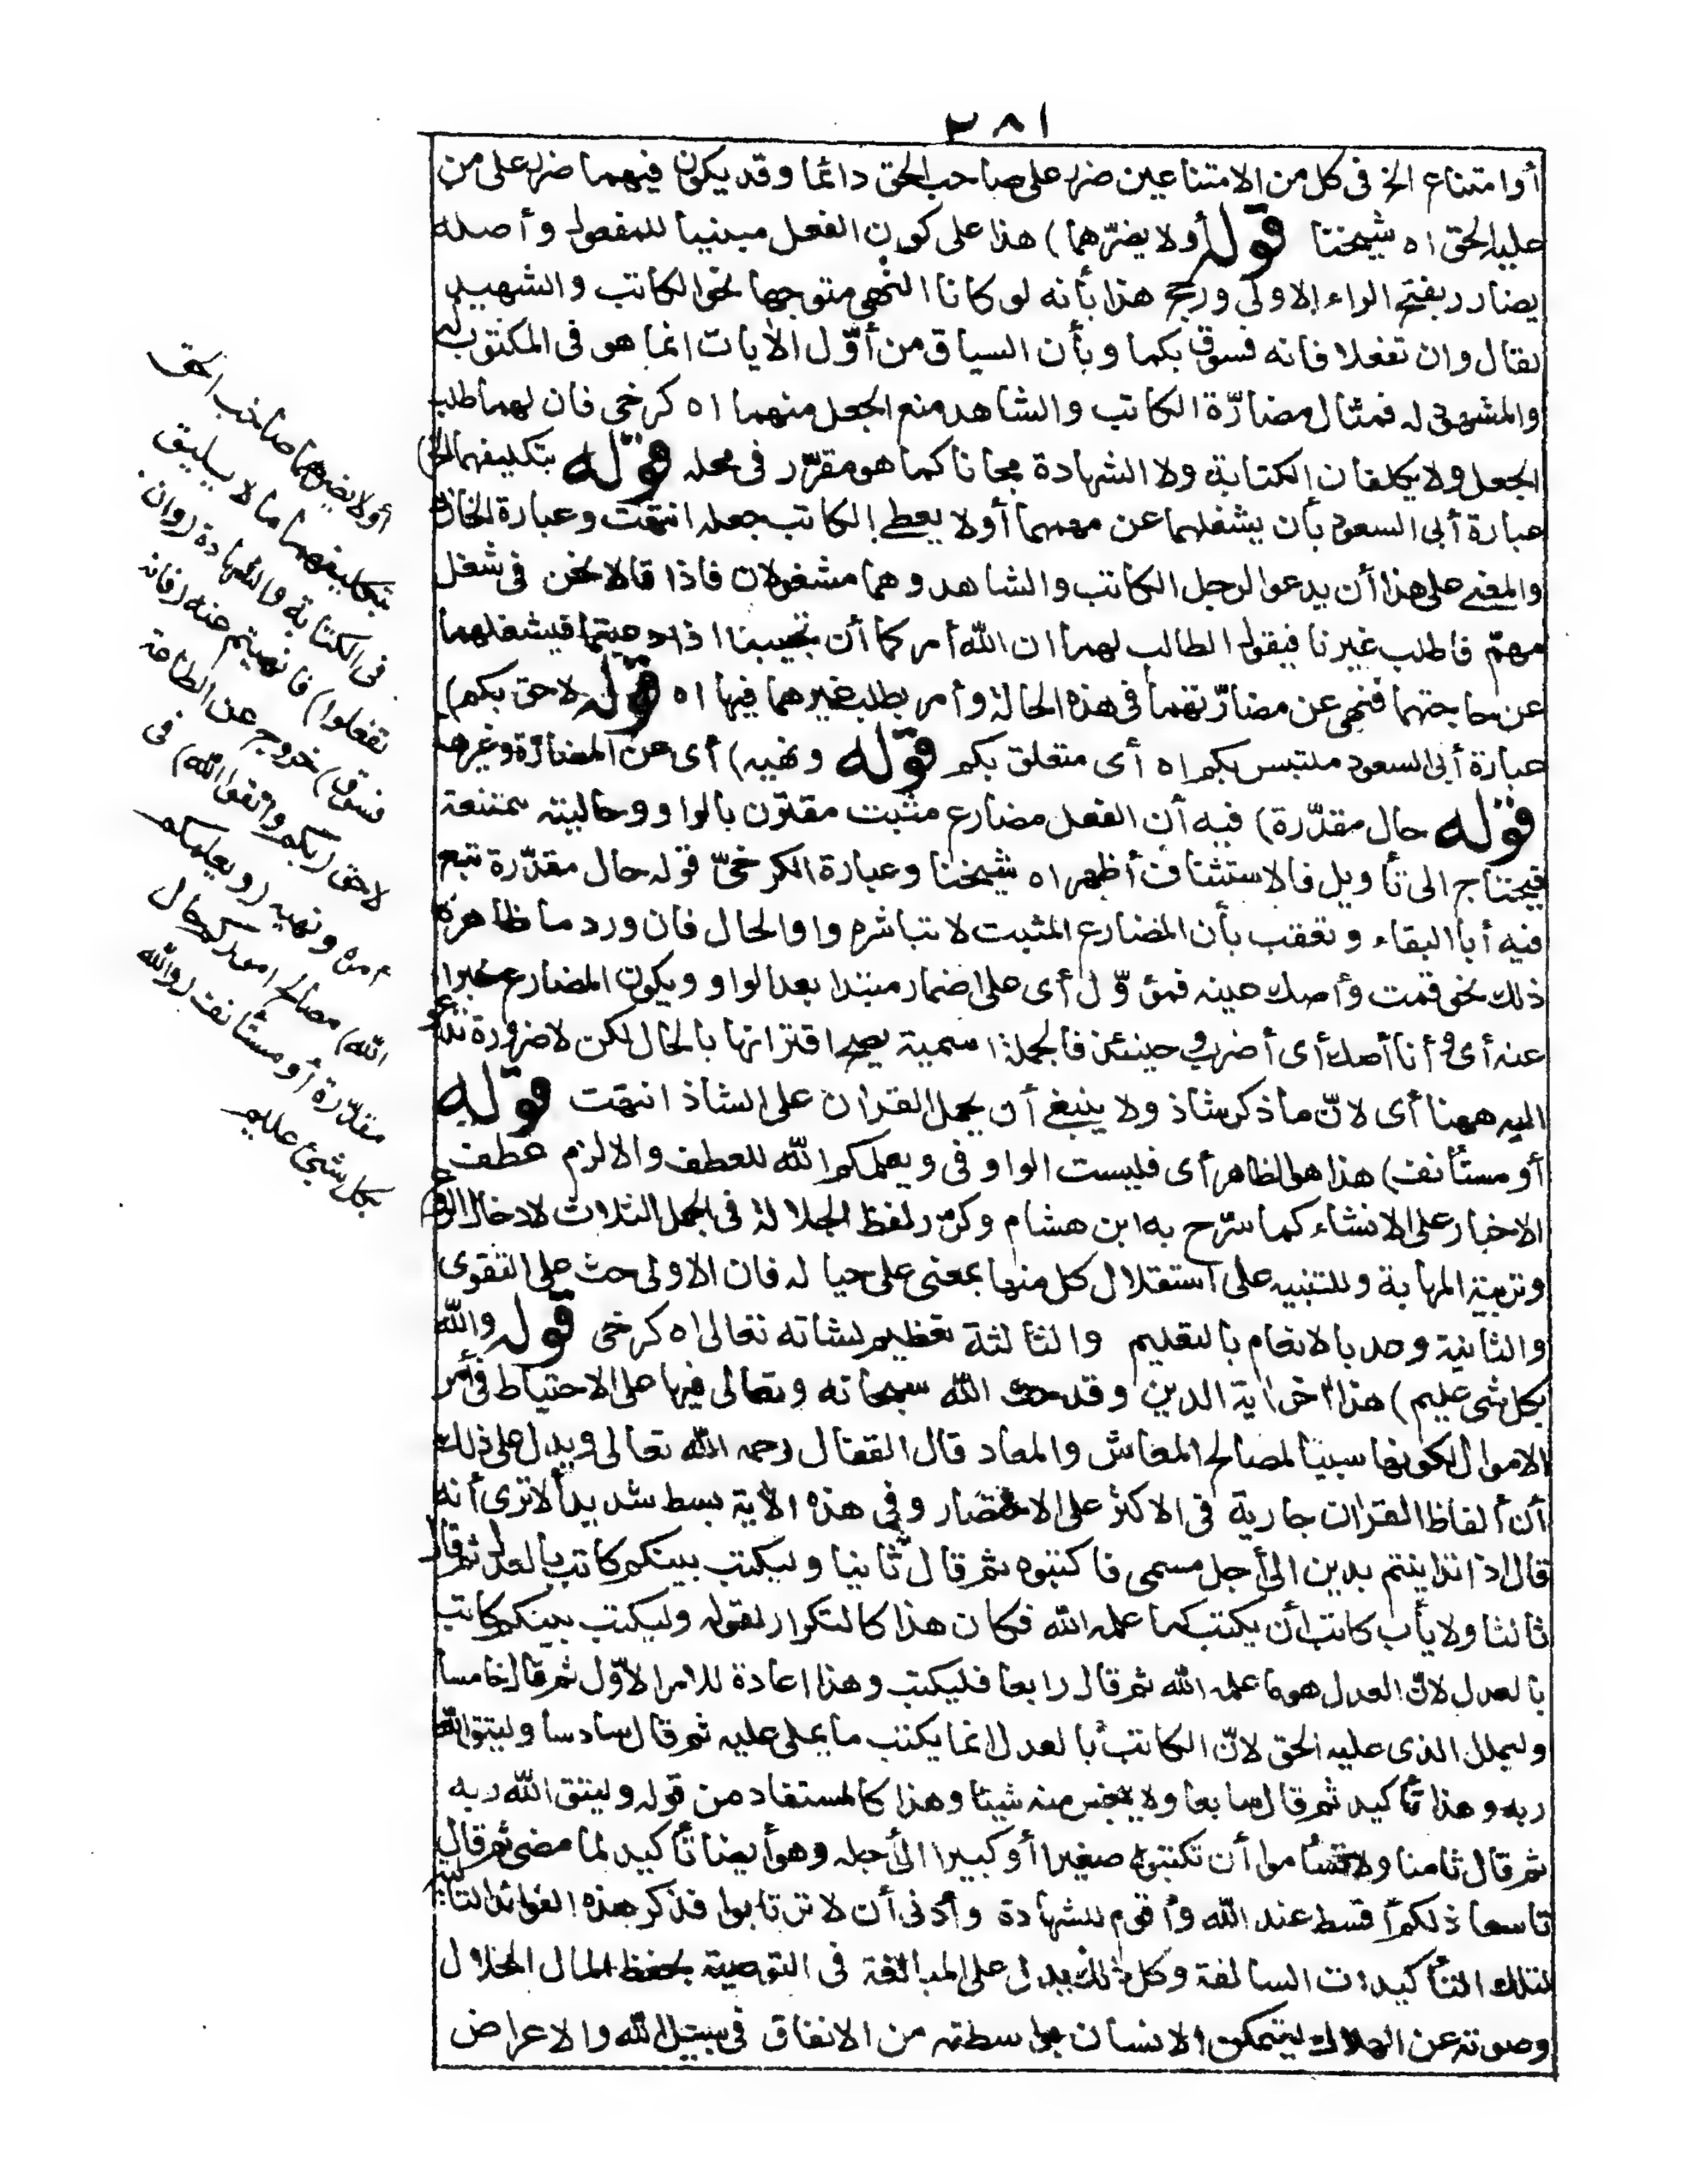 ٢٨١
أوامتناع الخ فى كل من الامتناعين ضرر على صاحب الحق دائما وقد يكون فيهما ضرر على من
عليه الحق اه شيخنا قوله أو لا يضرّهما) هذا على كون الفعل مبنيا للمفعول وأصله
يضارر بفتح الراء الاولى ورجح هذا بأنه لو كانا النهى متوجها نحو الكاتب والشهيد
لقال وان تفعلا فانه فسوق بكما وبأن السياق من أوّل الآيات انما هو فى المكتوب له
والمشهود له فمثال مضارّة الكاتب والشاهد منع الجعل منهما اه كرخى فان لهما طلب
الجعل ولا يكلفان الكتابة ولا الشهادة مجانا كما هو مقرّر فى محله قوله بتكليفهما الخ)
عبارة أبى السعود بأن يشغلهما عن مهمهما أو لا يعطى الكاتب جعله انتهت وعبارة الخازن
والمعنى على هذا أن يدعو الرجل الكاتب والشاهد وهما مشغولان فاذا قالا نحن فى شغل
مهمّ فاطلب غيرنا فيقول الطالب لهما ان الله أمركما أن تجيبنا اذا دعيتما فيشغلهما
عن حاجتهما فنهى عن مضارّتهما فى هذه الحالة وأمر بطلب غيرهما فيها اه قوله لاحق بكم)
عبارة أبى السعود ملتبس بكم اه أى متعلق بكم قوله ونهيه) أى عن المضارّة وغيرها
قوله حال مقدّرة) فيه أن الفعل مضارع مثبت مقترن بالواو وحاليته ممتنعة
فيحتاج الى تأويل فالاستئناف أظهر اه شيخنا وعبارة الكرخىّ قوله حال مقدّرة تبع
فيه أبا البقاء وتعقب بأن المضارع المثبت لا تباشره واو الحال فان ورد ما ظاهره
ذلك نحو قمت وأصك عينه فمؤوّل أى على اضمار مبتدا بعد الواو ويكون المضارع خبرا
عنه أى وأنا أصك أى أضرب وحينئذ فالجملة اسمية يصح اقترانها بالحال لكن لا ضرورة تدعو
اليه ههنا أى لانّ ما ذكر شاذ ولا ينبغى أن يحمل القرآن على الشاذ انتهت قوله
أو مستأنف) هذا هو الظاهر أى فليست الواو فى ويعلمكم الله للعطف والا لزم عطف
الاخبار على الانشاء كما صرّح به ابن هشام وكرّر لفظ الجلالة فى الجمل الثلاث لادخال الروع
وتربية المهابة وللتنبيه على استقلال كل منها بمعنى على حياله فان الاولى حث على التقوى
والثانية وعد بالانعام بالتعليم والثالثة تعظيم لشانه تعالى اه كرخى قوله والله
بكل شئ عليم) هذا آخر آية الدين وقد حث الله سبحانه وتعالى فيها على الاحتياط فى أمر
الاموال لكونها سببا لمصالح المعاش والمعاد قال القفال رحمه الله تعالى ويدل على ذلك
أن ألفاظ القرآن جارية فى الاكثر على الاختصار وفى هذه الآية بسط شديد ألا ترى أنه
قال اذا تداينتم بدين الى أجل مسمى فاكتبوه ثم قال ثانيا وليكتب بينكم كاتب بالعدل ثم قال
ثالثا ولا يأب كاتب أن يكتب كما علمه الله فكان هذا كالتكرار لقوله وليكتب بينكم كاتب
بالعدل لانّ العدل هو ما علمه الله ثم قال رابعا فليكتب وهذا اعادة للامر الاوّل ثم قال خامسا
وليملل الذى عليه الحق لانّ الكاتب بالعدل انما يكتب ما يملى عليه ثم قال سادسا وليتق الله
ربه وهذا تأكيد ثم قال سابعا ولا يبخس منه شيئا وهذا كالمستفاد من قوله وليتق الله ربه
ثم قال ثامنا ولا تسأموا أن تكتبوه صغيرا أو كبيرا الى أجله وهو أيضا تأكيد لما مضى ثم قال
تاسعا ذلكم أقسط عند الله وأقوم للشهادة وأدنى أن لا ترتابوا فذكر هذه الفوائد التالية
لتلك التأكيدات السالفة وكل ذلك يدل على المبالغة فى التوصية بحفظ المال الحلال
وصونه عن الهلاك ليتمكن الانسان بواسطته من الانفاق فى سبيل الله والاعراض
أو لا يضرهما صاحب الحق
بتكليفهما ما لا يليق
فى الكتابة والشهادة (وان
تفعلوا) ما نهيتم عنه (فانه
فسوق) خروج عن الطاعة
لاحق (بكم واتقوا الله) فى
أمره ونهيه (ويعلمكم
الله) مصالح أموركم حال
مقدّرة أو مستأنف (والله
بكل شئ عليم